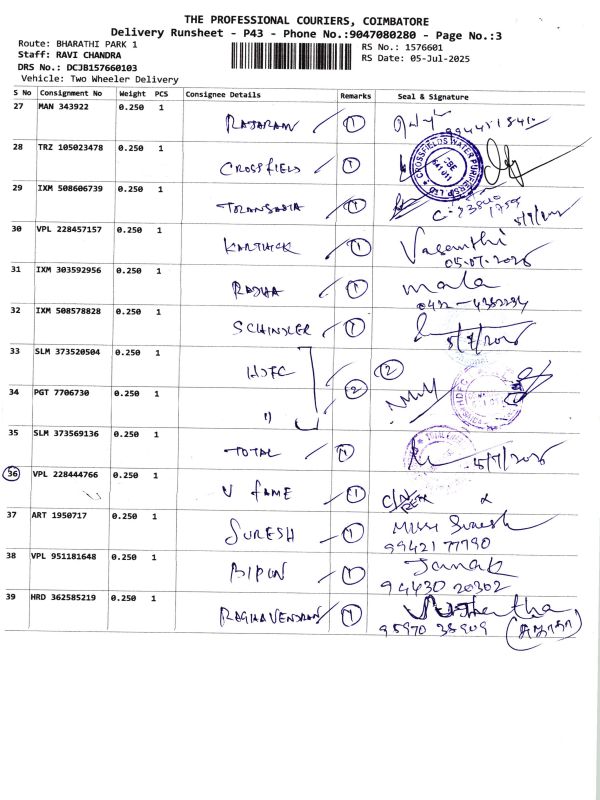 THE PROFESSIONAL COURIERS, COIMBATORE
Delivery Runsheet - P43 - Phone No.:9047080280 - Page No.:3
Route: BHARATHI PARK 1
Staff: RAVI CHANDRA
DRS No.: DCJB157660103
Vehicle: Two Wheeler Delivery
RS No.: 1576601
RS Date: 05-Jul-2025
S No Consignment No Weight PCS Consignee Details Remarks Seal & Signature
27 MAN 343922 0.250 1
RAJARAM 1
28 TRZ 105023478 0.250 1
CROSSFIELD 1
CROSSFIELDS WATER PURIFIERS P LTD
29 IXM 508606739 0.250 1
TRANSASIA 1
30 VPL 228457157 0.250 1
KARTHICK 1 Vasanthi
05.07.2025
31 IXM 303592956 0.250 1
RADHA 1 mala
32 IXM 508578828 0.250 1
SCHINDLER 1
5/7/2025
33 SLM 373520504 0.250 1
HDFC 2 2
34 PGT 7706730 0.250 1
"
35 SLM 373569136 0.250 1
TOTAL 1 5/7/2025
36 VPL 228444766 0.250 1
V FAME 1
37 ART 1950717 0.250 1
SURESH 1 Suresh
99421 77790
38 VPL 951181648 0.250 1
BIPIN 1 Janak
94430 20302
39 HRD 362585219 0.250 1
RAGHAVENDRAN 1
95970 38909 (சுஜாதா)